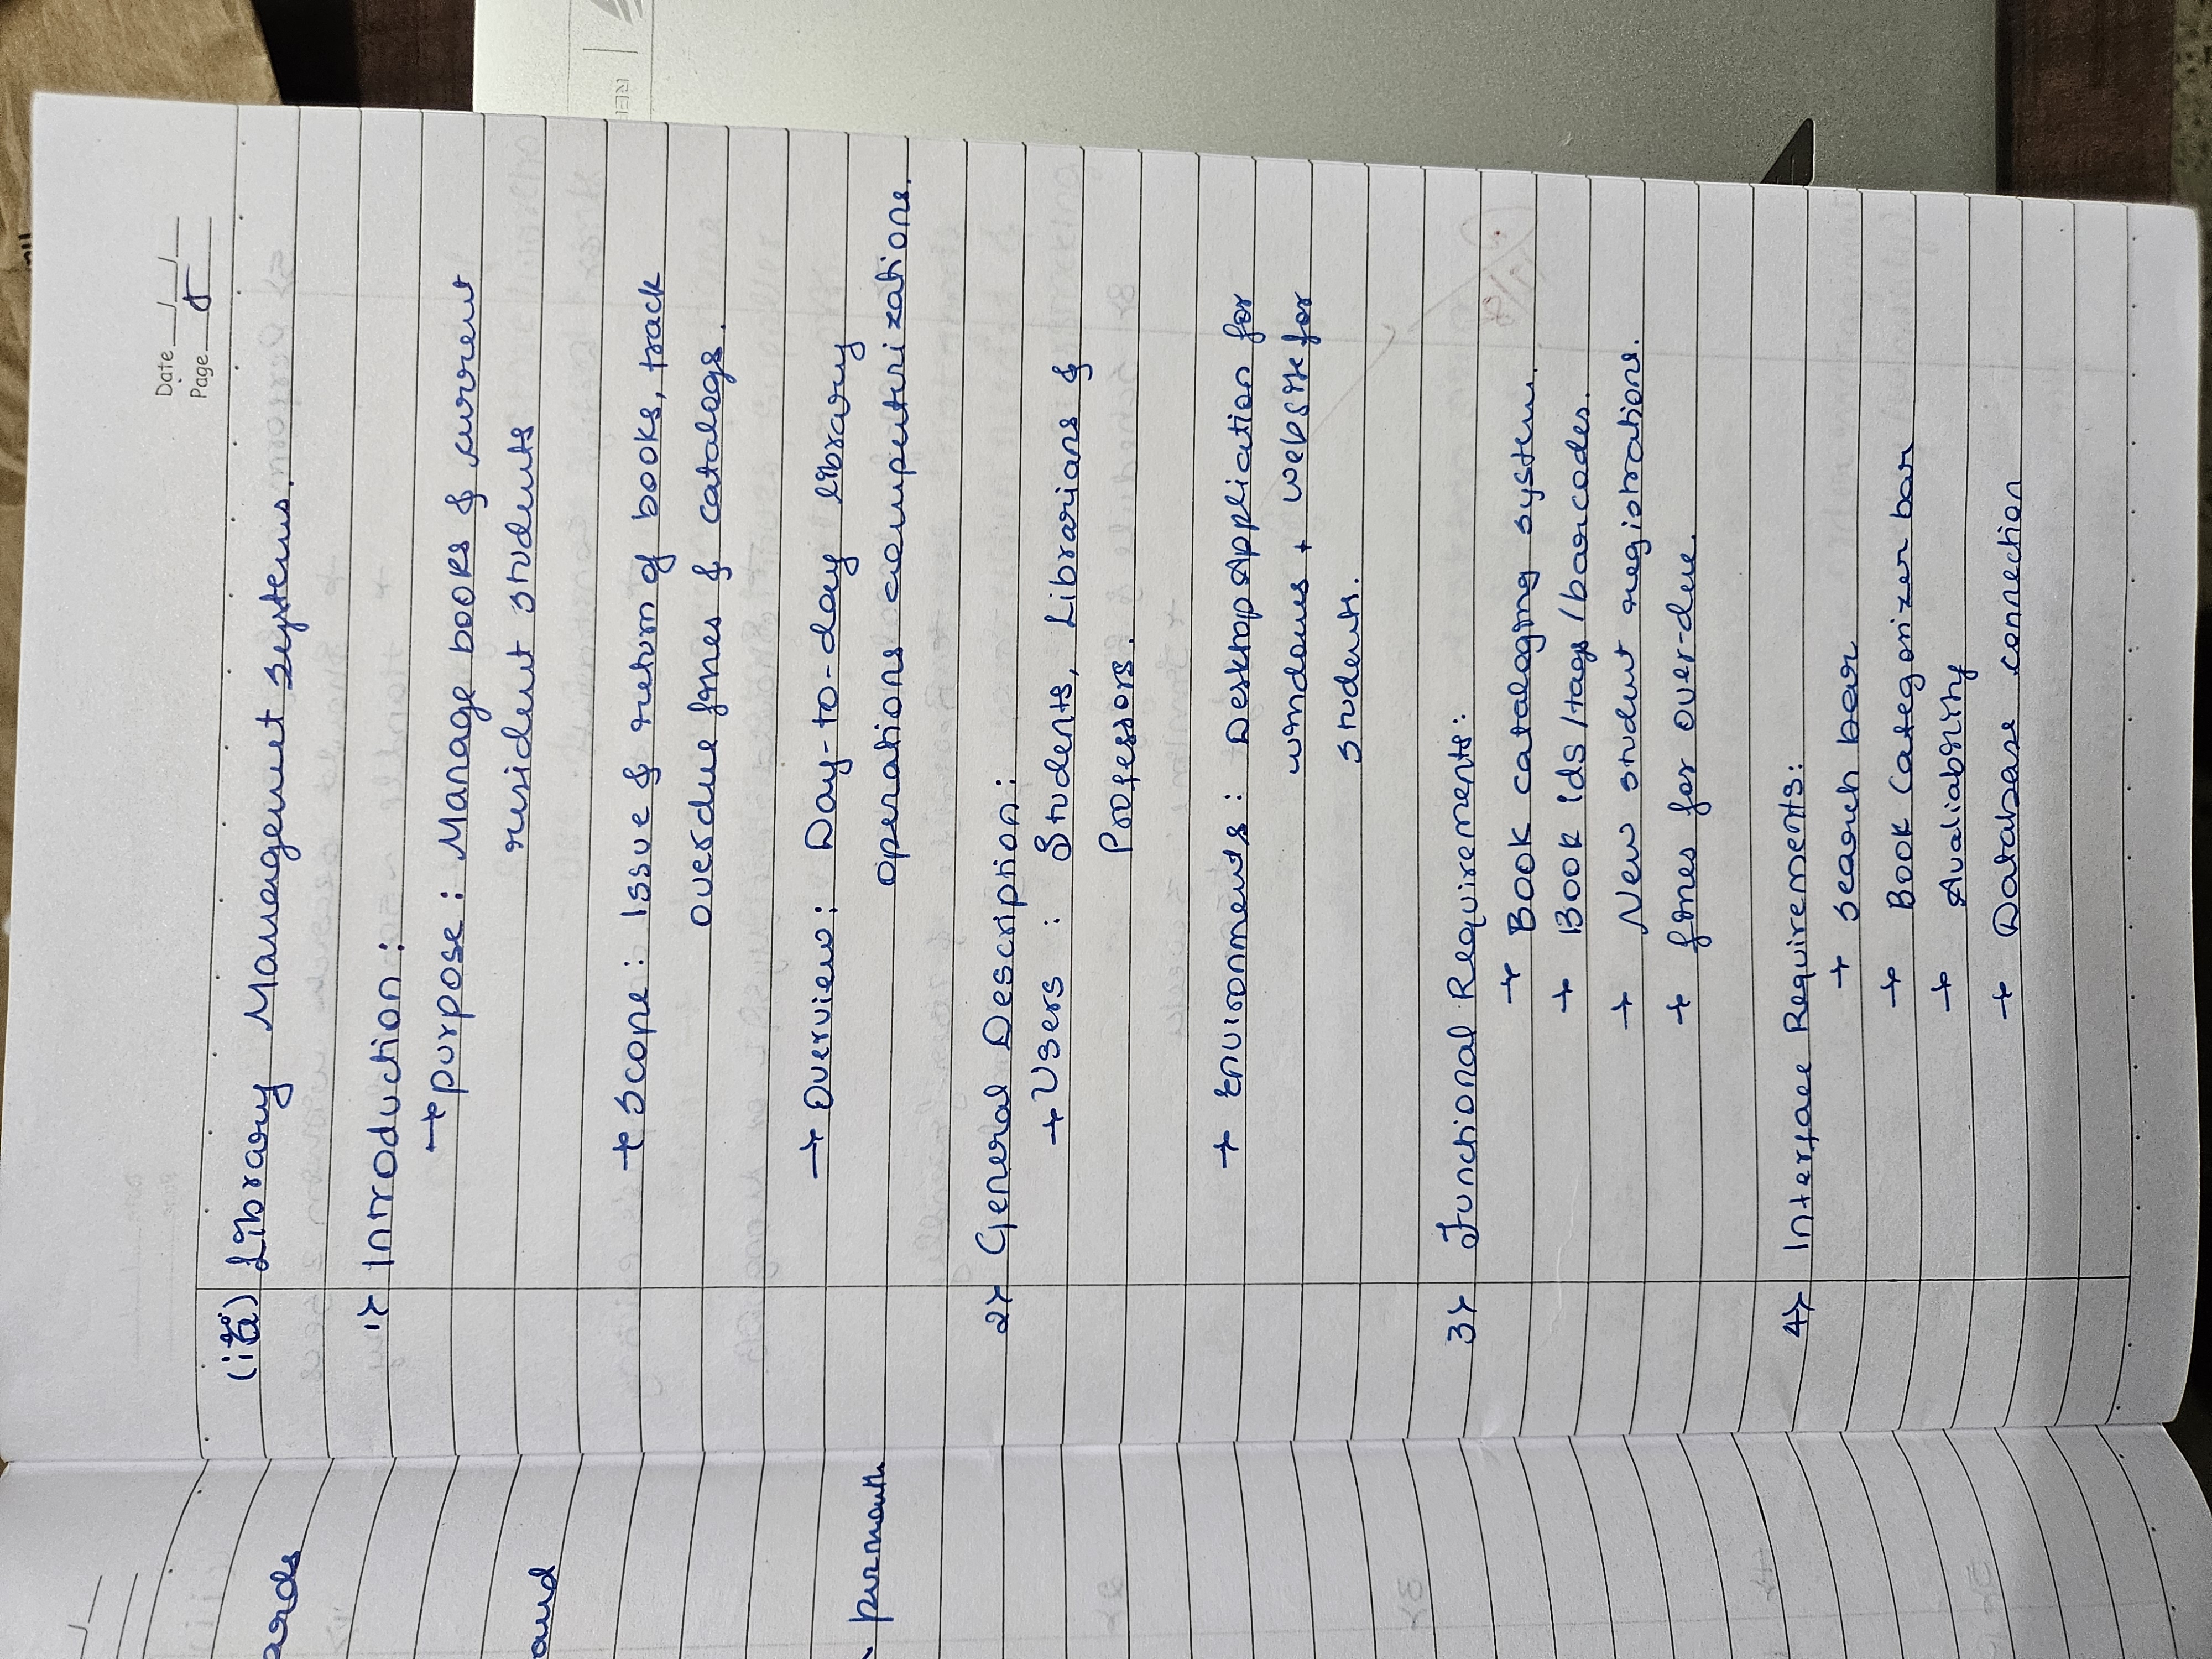 ards
and
per month
Date
Page
Library Management Systems.
1> Introduction :
→ purpose : Manage books & current
resident students
→ Scope : Issue & return of books, track
overdue fines & catalogs.
→ Overview : Day-to-day library
operations computerizations.
2> General Description :
→ Users : Students, Librarians &
Professors.
→ Environments : Desktop Application for
windows + website for
students.
3> Functional Requirements:
→ Book cataloging system.
→ Book ids /tags /barcodes.
→ New student registrations.
→ fines for over-due.
4> Interface Requirements:
→ search bar
→ Book Categorizer bar
→ Avaliability
→ Database connection